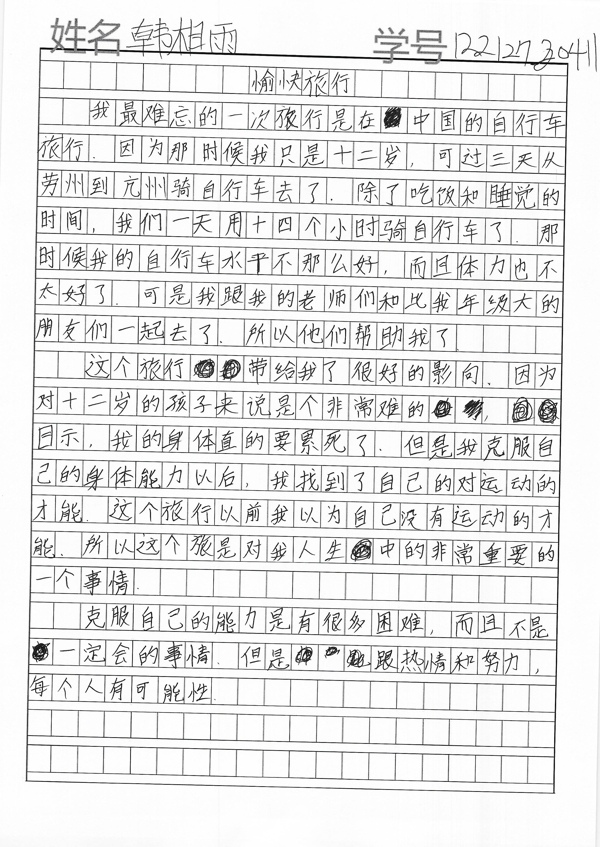 姓名 韩相雨 学号 1221273041
愉快旅行
我最难忘的一次旅行是在中国的自行车
旅行.因为那时候我只是十二岁,可过三天从
劳州到亢州骑自行车去了.除了吃饭和睡觉的
时间,我们一天用十四个小时骑自行车了.那
时候我的自行车水平不那么好,而且体力也不
太好了.可是我跟我的老师们和比我年级大的
朋友们一起去了.所以他们帮助我了.
这个旅行带给我了很好的影向.因为
对十二岁的孩子来说是个非常难的,
目示,我的身体直的要累死了.但是我克服自
己的身体能力以后,我找到了自己的对运动的
才能.这个旅行以前我以为自己没有运动的才
能.所以这个旅是对我人生中的非常重要的
一个事情.
克服自己的能力是有很多困难,而且不是
一定会的事情.但是跟热情和努力,
每个人有可能性.